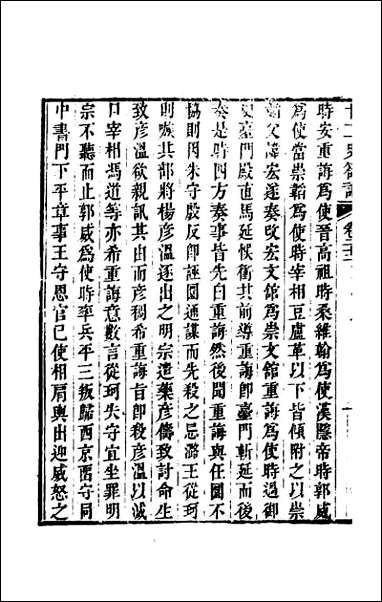 時安重誨爲使晉高祖時桑維翰爲使漢隱帝時郭威
爲使當崇韜爲使時宰相豆盧革以下皆傾附之以崇
韜父諱宏遂奏改宏文館爲崇文館重誨爲使時過御
史臺門殿直馬延悞衝其前導重誨卽臺門斬延而後
奏是時四方奏事皆先白重誨然後聞重誨與任圜不
協則因朱守殷反卽誣圜通謀而先殺之忌潞王從珂
則嗾其部將楊彥溫逐出之明宗遣藥彥儔致討命生
致彥溫欲親訊其由而彥稠希重誨旨卽殺彥溫以滅
口宰相馮道等亦希重誨意數言從珂失守宜坐罪明
宗不聽而止郭威爲使時率兵平三叛歸西京畱守同
中書門下平章事王守恩官已使相肩輿出迎威怒之
十二史劄記 卷二十二